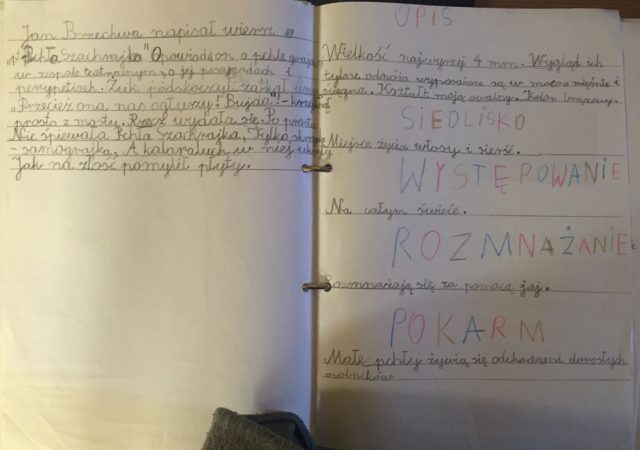 Jan Brzechwa napisał wiersz o
"Pchła Szachrajka" Opowiada on o pchle grającej
w zespole teatralnym, o jej przygodach i
perypetiach. Żuk podskoczył, zaklął
"Przecież ona nas ogłuszy! Bujda!" - krzyknął
prosto z mostu. Rzecz wydała się. Po prostu
Nie śpiewała Pchła Szachrajka, Tylko skrzynka
- samograjka, A kataraluch w niej ukryty
Jak na złość pomylił płyty.
OPIS
Wielkość najwyżej 4 mm. Wygląd ich
tylne odnóża wyposażone są w mocne mięśnie i
ścięgna. Kształt mają owalny. Kolor brązowy.
SIEDLISKO
Miejsce życia włosy i sierść.
WYSTĘPOWANIE
Na całym świecie.
ROZMNAŻANIE
Rozmnażają się za pomocą jaj.
POKARM
Małe pchły żywią się odchodami dorosłych
osobników